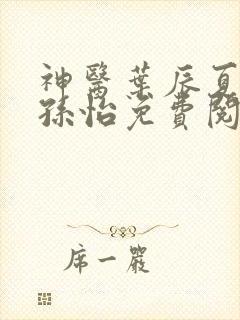 神醫葉辰夏
孫怡免費閱
席一嚴